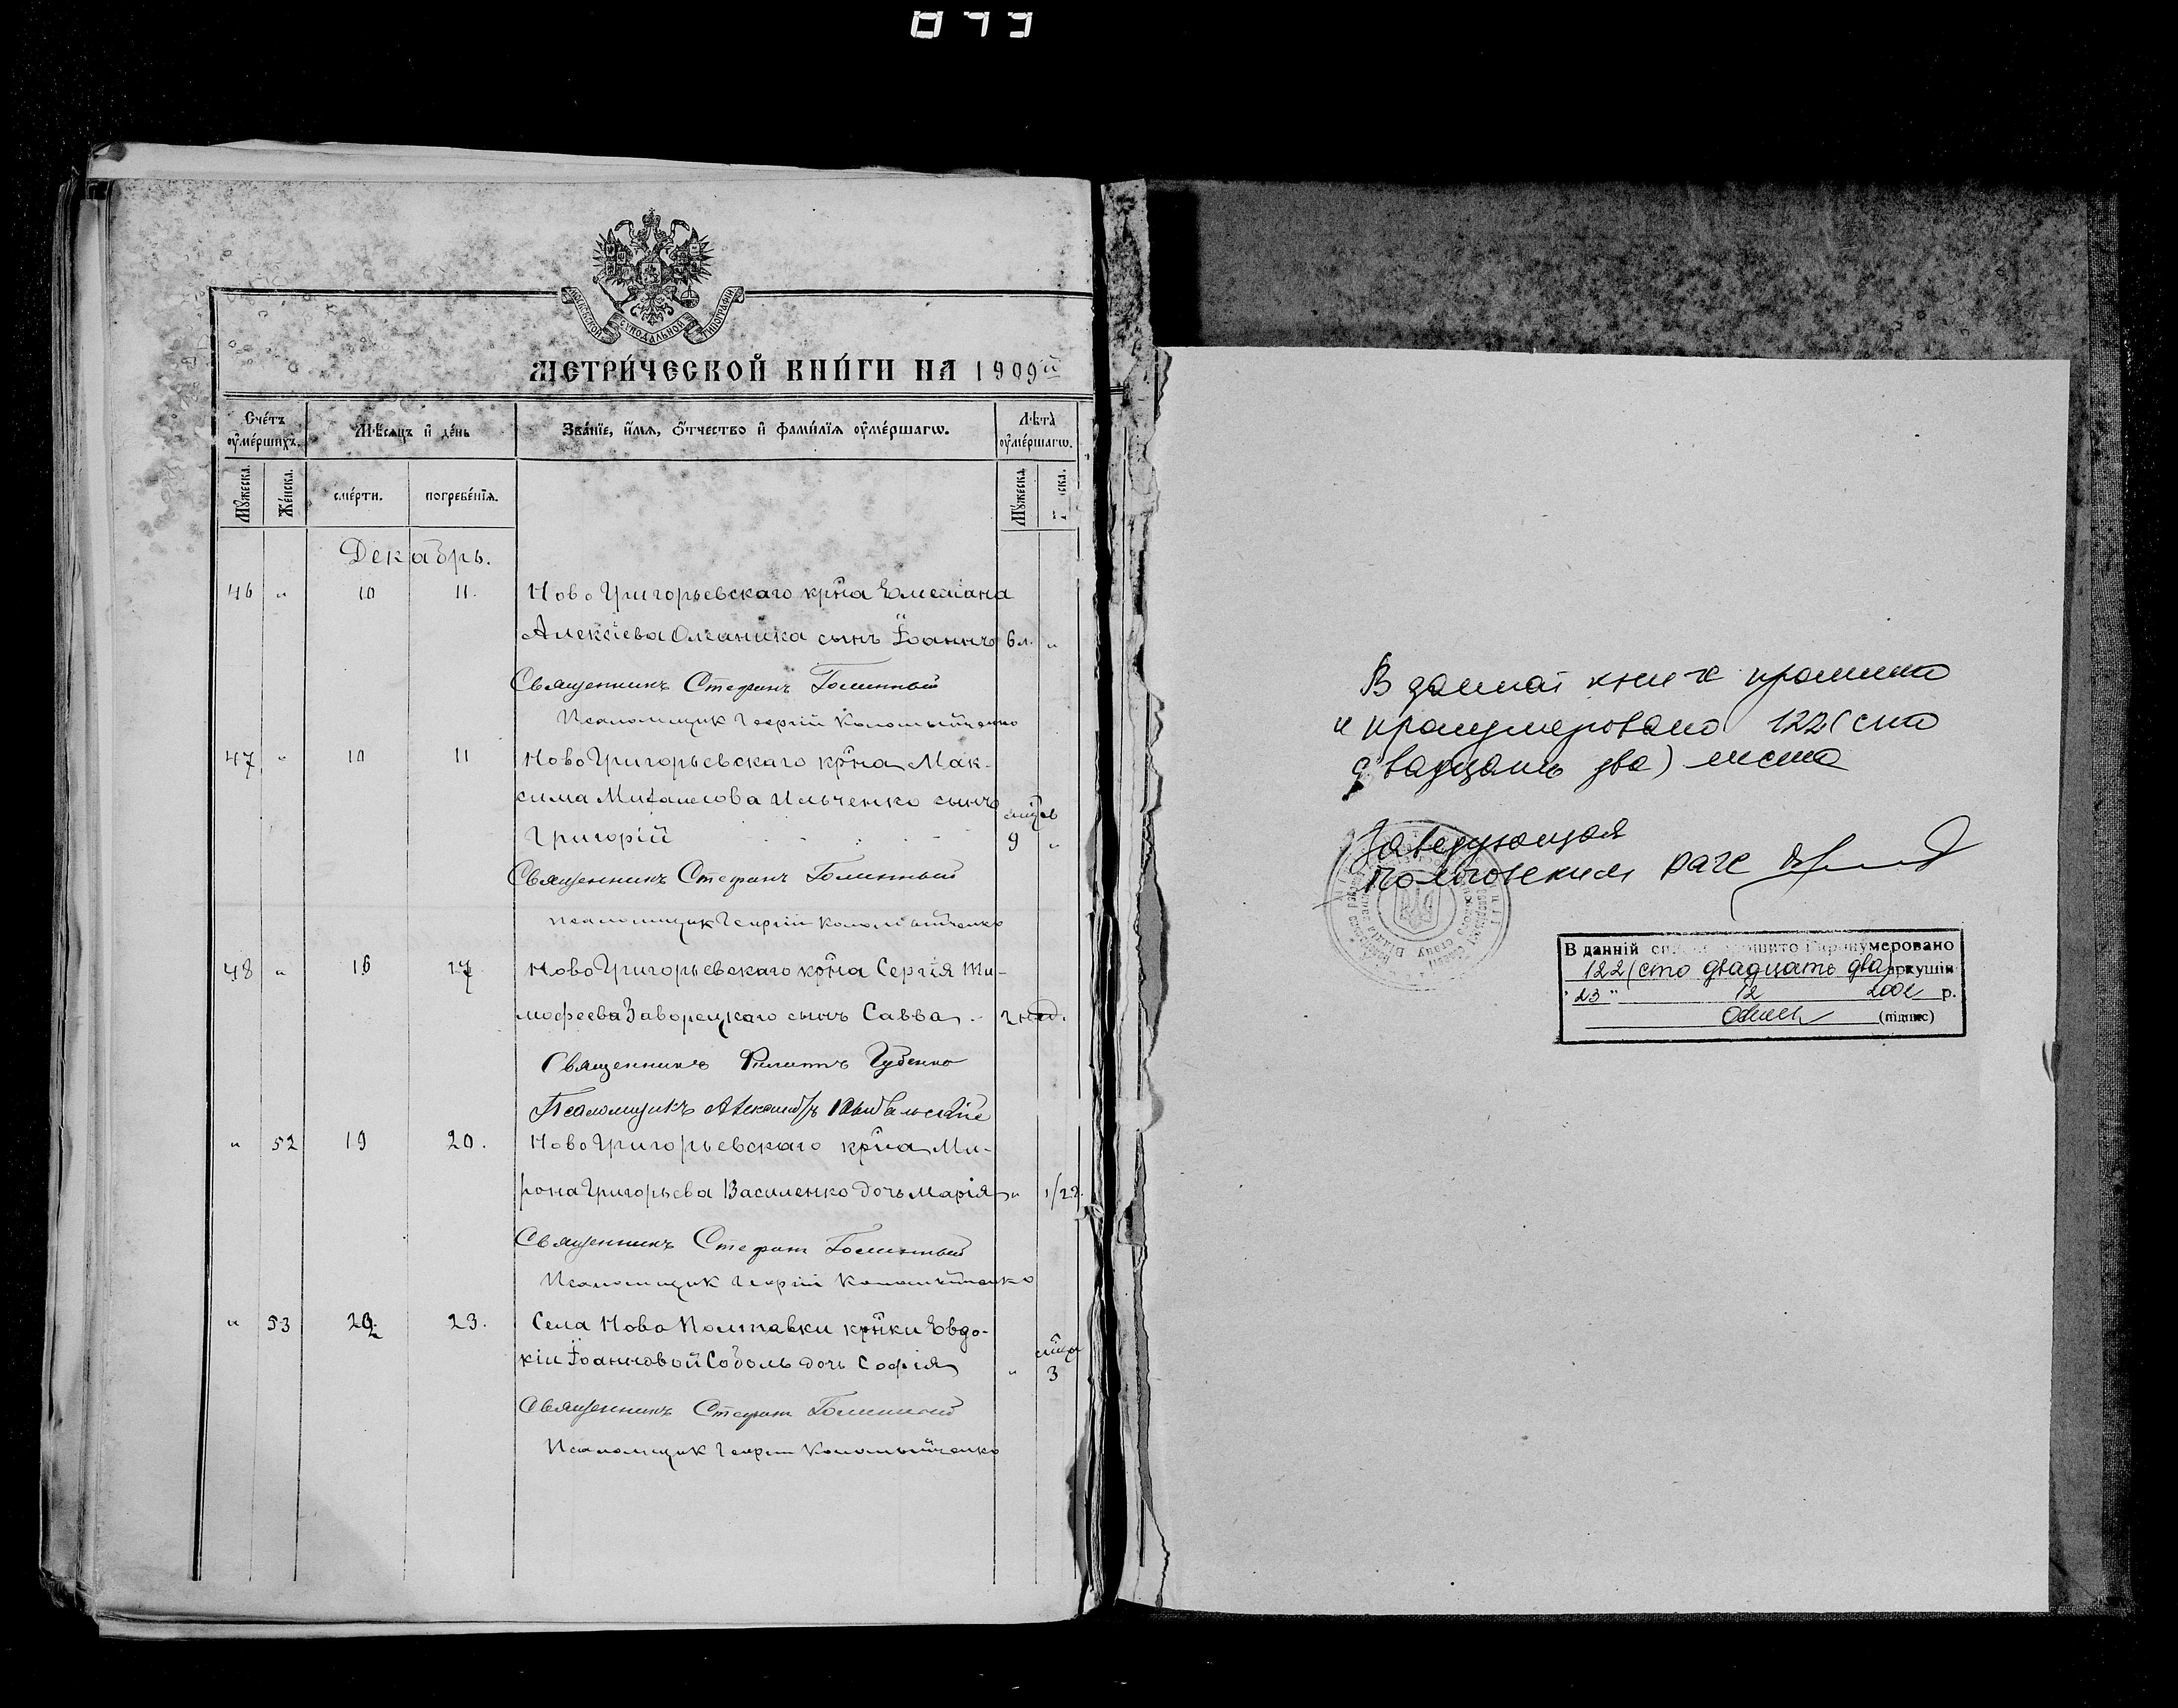 873
МОСКОВСКОЙ СѴНОДАЛЬНОЙ ТИПОГРАФІИ
МЕТРИ́ЧЕСКОЙ КНИ́ГИ НА 1909й
Сче́тъ оу҆ме́ршихъ.
Мѣ́сѧцъ и҆ де́нь
Зва́нїе, и҆́мѧ, ѻ҆́тчество и҆ фами́лїѧ оу҆ме́ршагѡ.
Лѣ́та оу҆ме́ршагѡ.
Мꙋ́жеска.
Же́нска.
сме́рти.
погребе́нїѧ.
Мꙋ́жеска
ска.
Декабрь.
46 " 10 11. Ново Григорьевскаго крĩна Емеліана
Алексіева Олейника сынъ Іоаннъ 6 л. "
Священникъ Стефанъ Голинный
Псаломщик Георгій Коломыйченко
47 " 10 11 Ново Григорьевскаго крĩна Мак-
сима Михаилова Ильченко сынъ
Григорій 9 "
Священникъ Стефанъ Голинный
псаломщик Георгій Коломыйченко
48 " 16 17 Ново Григорьевскаго крĩна Сергія Ти-
мофеева Заворецкаго сынъ Савва. 2 нед.
Священникъ Филиппъ Губенко
Псаломщикъ
" 52 19 20. Ново Григорьевскаго крĩна Ми-
рона Григорьева Василенко дочь Марія " 1/2 г.
Священникъ Стефан Голинный
Псаломщик Георгій Коломыйченко
" 53 22 23. Села Ново Полтавки крĩнки Евдо-
кіи Іоанновой Соболь дочь Софія " 3
Священникъ Стефан Голинный
Псаломщик Георгій Коломыйченко
В данной книге прошито
и пронумеровано 122 (сто
двадцать два) листа
Заведующая
РАГС
В данній прошито і пронумеровано
122 (сто двадцать два) аркушів
"23" 12 2002 р.
(підпис)